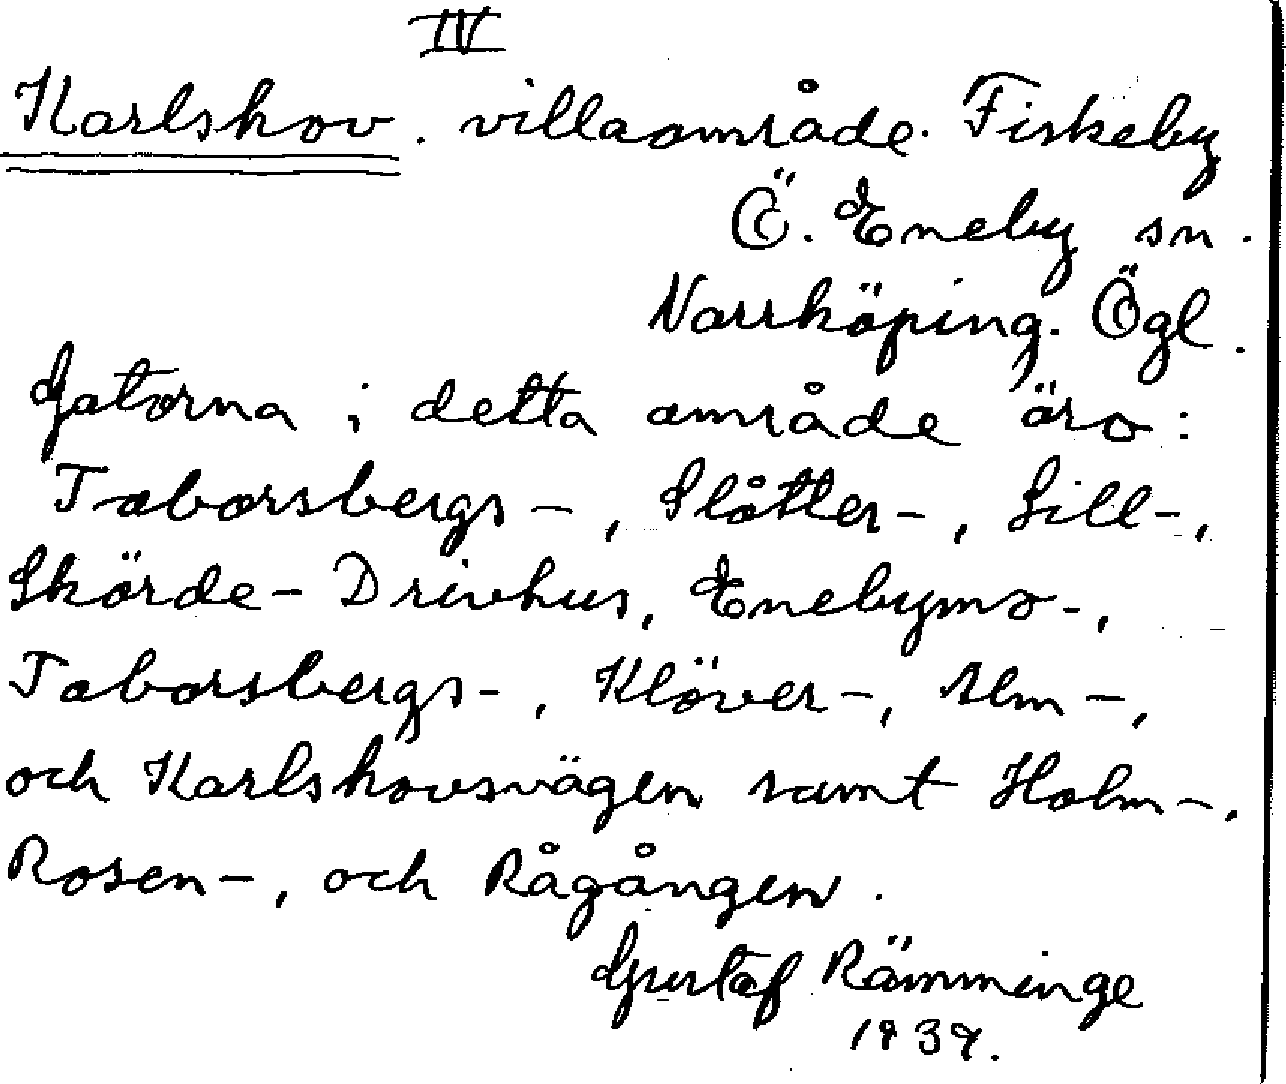 IV
Karlshov. villaområde. Fiskeby
Ö. Eneby sn.
Norrköping. Ögl.
Gatorna i detta område äro:
Taborsbergs-, Slåtter-, Lill-,
Skörde- Drivhus, Enebymo-,
Taborsbergs-, Klöver-, Alm-,
och Karlshovsvägen samt Holm-.
Rosen-, och Rågången.
Gustaf Rämminge
1939.